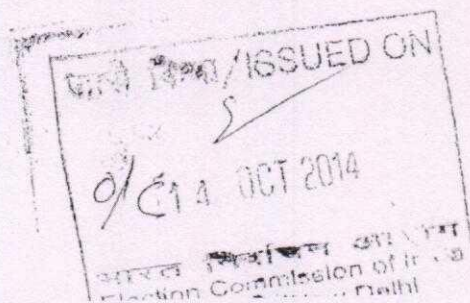 जारी किया/ISSUED ON
O/C 14 OCT 2014
भारत निर्वाचन आयोग
Election Commission of India
Delhi